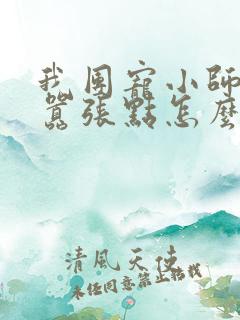 我團寵小師
囂張點怎麼
清風天使
未經同意禁止轉載